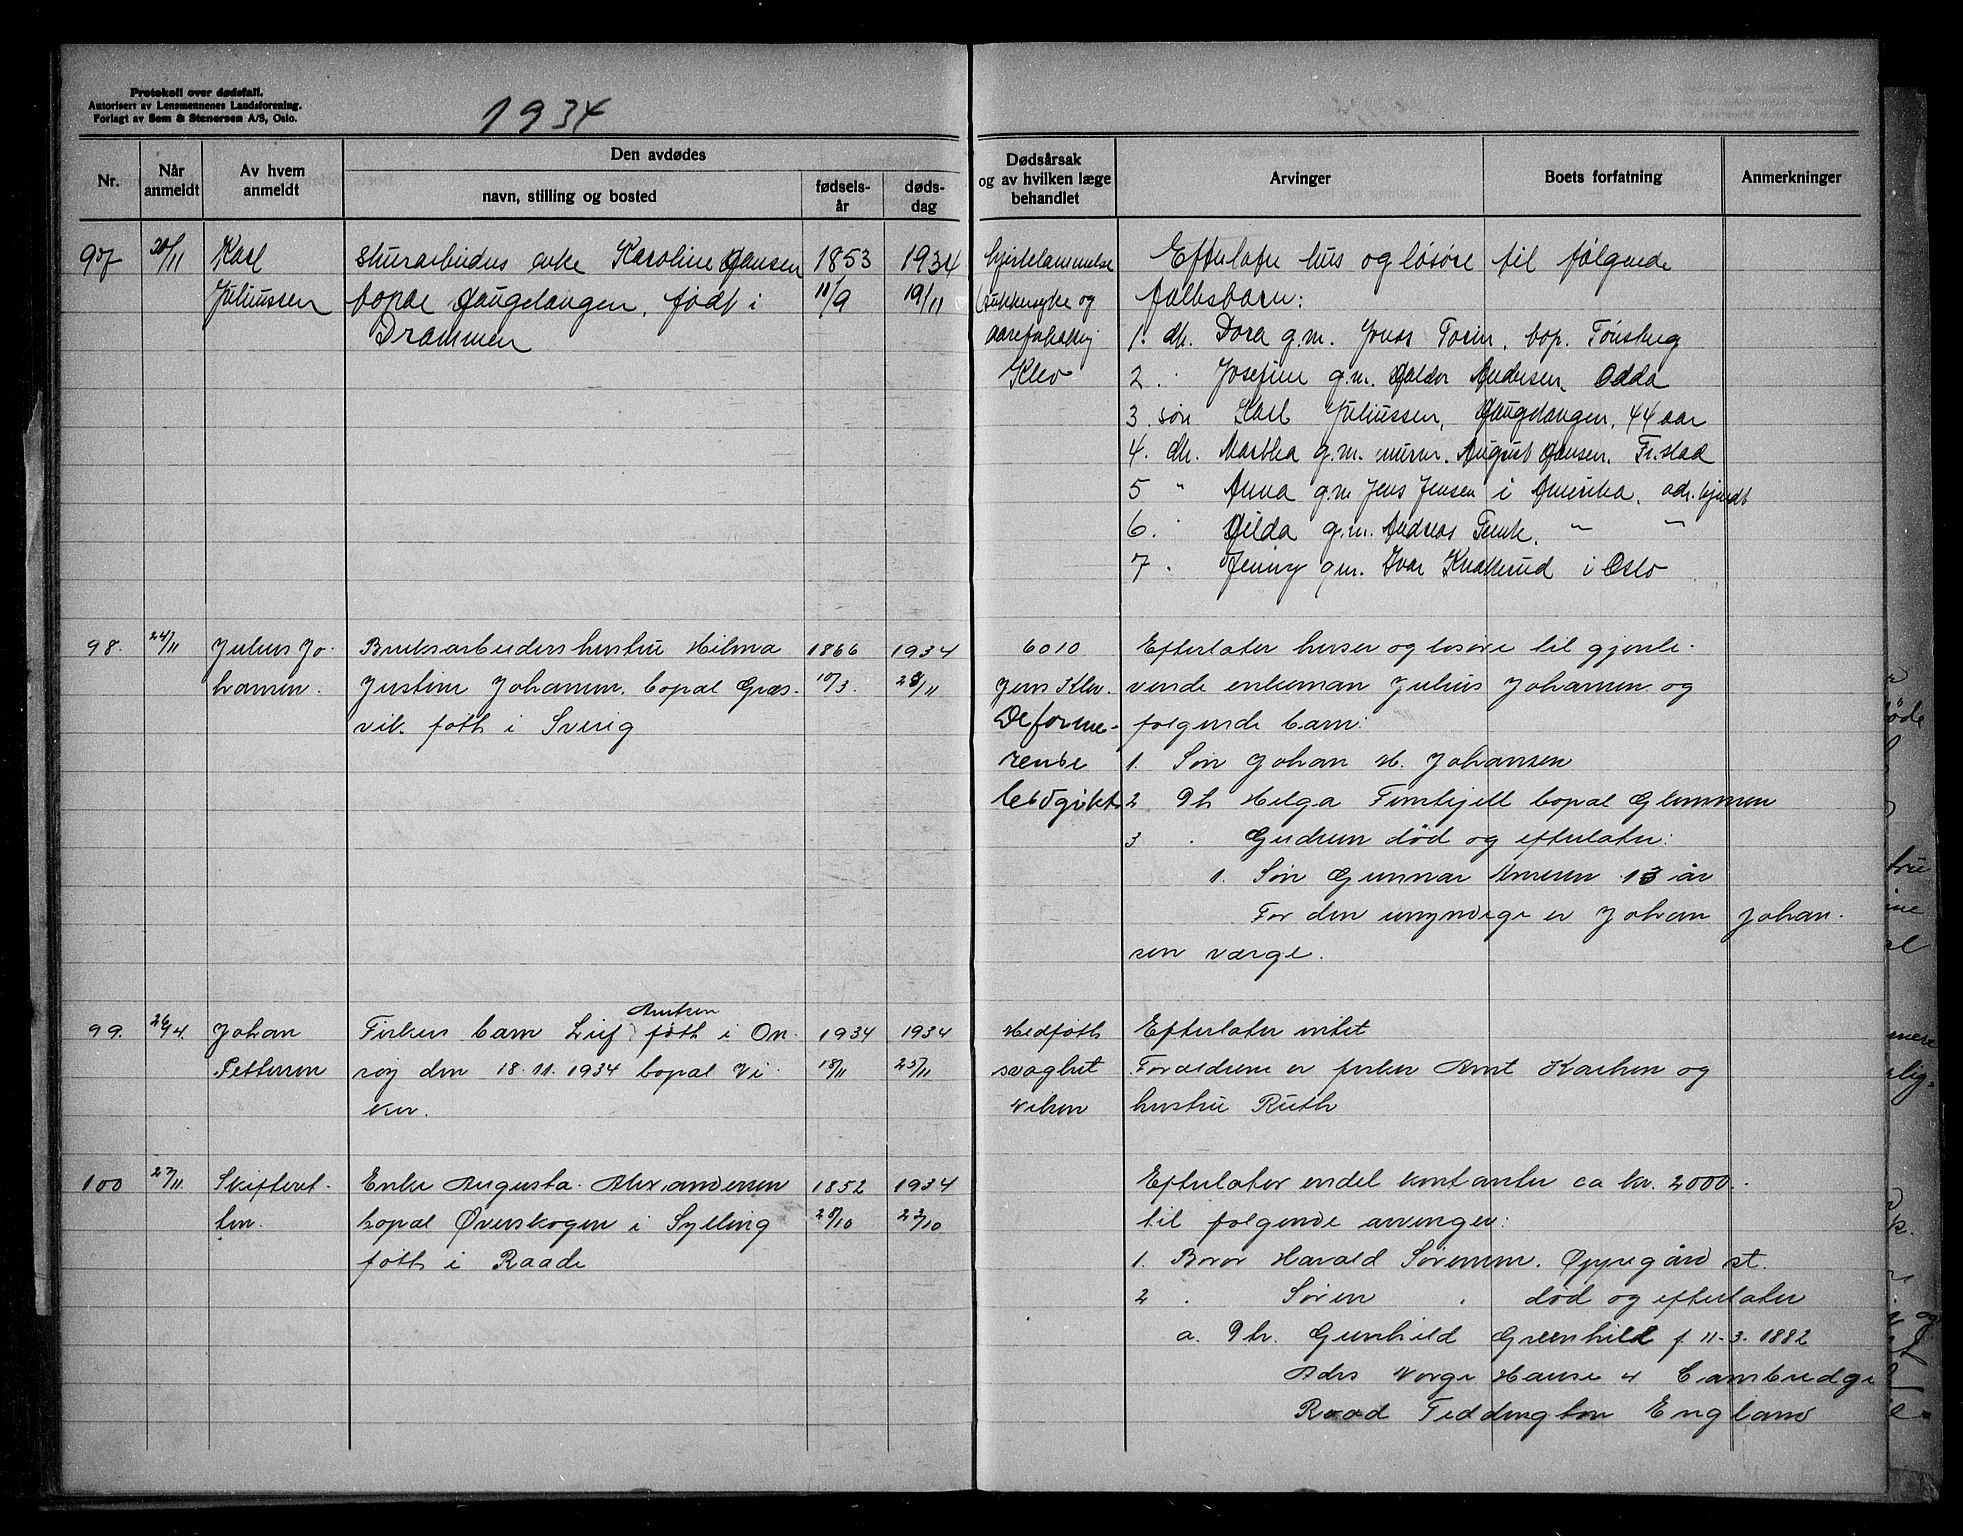 Protokoll over dødsfall.
Autorisert av Lensmennenes Landsforening.
Forlagt av Sem & Stenersen A/S, Oslo.
1934
Nr.
Når anmeldt
Av hvem anmeldt
Den avdødes
navn, stilling og bosted
fødsels-år
døds-dag
Dødsårsak og av hvilken læge behandlet
Arvinger
Boets forfatning
Anmerkninger
97
20/11
Karl
Juliussen
enke Karoline Hansen
bopæl Haugetangen, født i
Drammen
1853
11/9
1934
19/11
hjertelammelse
sukkersyke og
Klev
Efterlater hus og løsøre til følgende
1. dt. Dora g.m. Jonas bop. Tønsberg
2. " Josefine g.m. Haldor Andersen, Odda
3. søn Karl Juliussen, Haugetangen, 44 aar
4. dt. Martha g.m. murer August Hansen. Fr.stad
5 " Anna g.m. Jens Jensen i Amerika, adr. ukjendt
6. " Hilda g.m. Andreas " "
7. Jenny g.m. Ivar Knatterud i Oslo
98.
24/11
Julius Jo-
hansen.
Bruksarbeiders hustru Hilma
Justine Johansen, bopæl Græs-
vik. føth i Sverig
1866
10/3.
1934
23/11
6010
Jens Klev.
Deforme-
rende
ledgikt
Efterlater huser og løsøre til gjenle-
vende enkeman Julius Johansen og
følgende barn:
1. Søn Johan H. Johansen
2 Dt. Helga bopæl Glemmen
3 " Gudrun død og efterlater:
1. Søn Gunnar 13 år
For den umyndige er Johan Johan-
sen værge.
99.
Johan
Pettersen
Fiskers barn Leif føth i On-
søy den 18.11.1934 bopæl Vi-
ker.
1934
18/11
1934
25/11
Medføth
svaghet
Nilsen
Efterlater intet
Foreldrene er fisker Arnt Karlsen og
hustru Ruth
100
27/11
Skifteret-
ten.
Enke Augusta Alexandersen
bopæl Øverskogen i Sylling
føth i Raade
1852
1934
23/10
Efterlater endel kontanter ca kr. 2000.
til følgende arvinger:
1. Boror Harald Sørensen. Oppegård st.
2 " Søren " død og efterlater
a. Dt. Gunhild Greenhill f. 11-3. 1882
Adrs Norge House 4 Cambridge
Road Teddington England